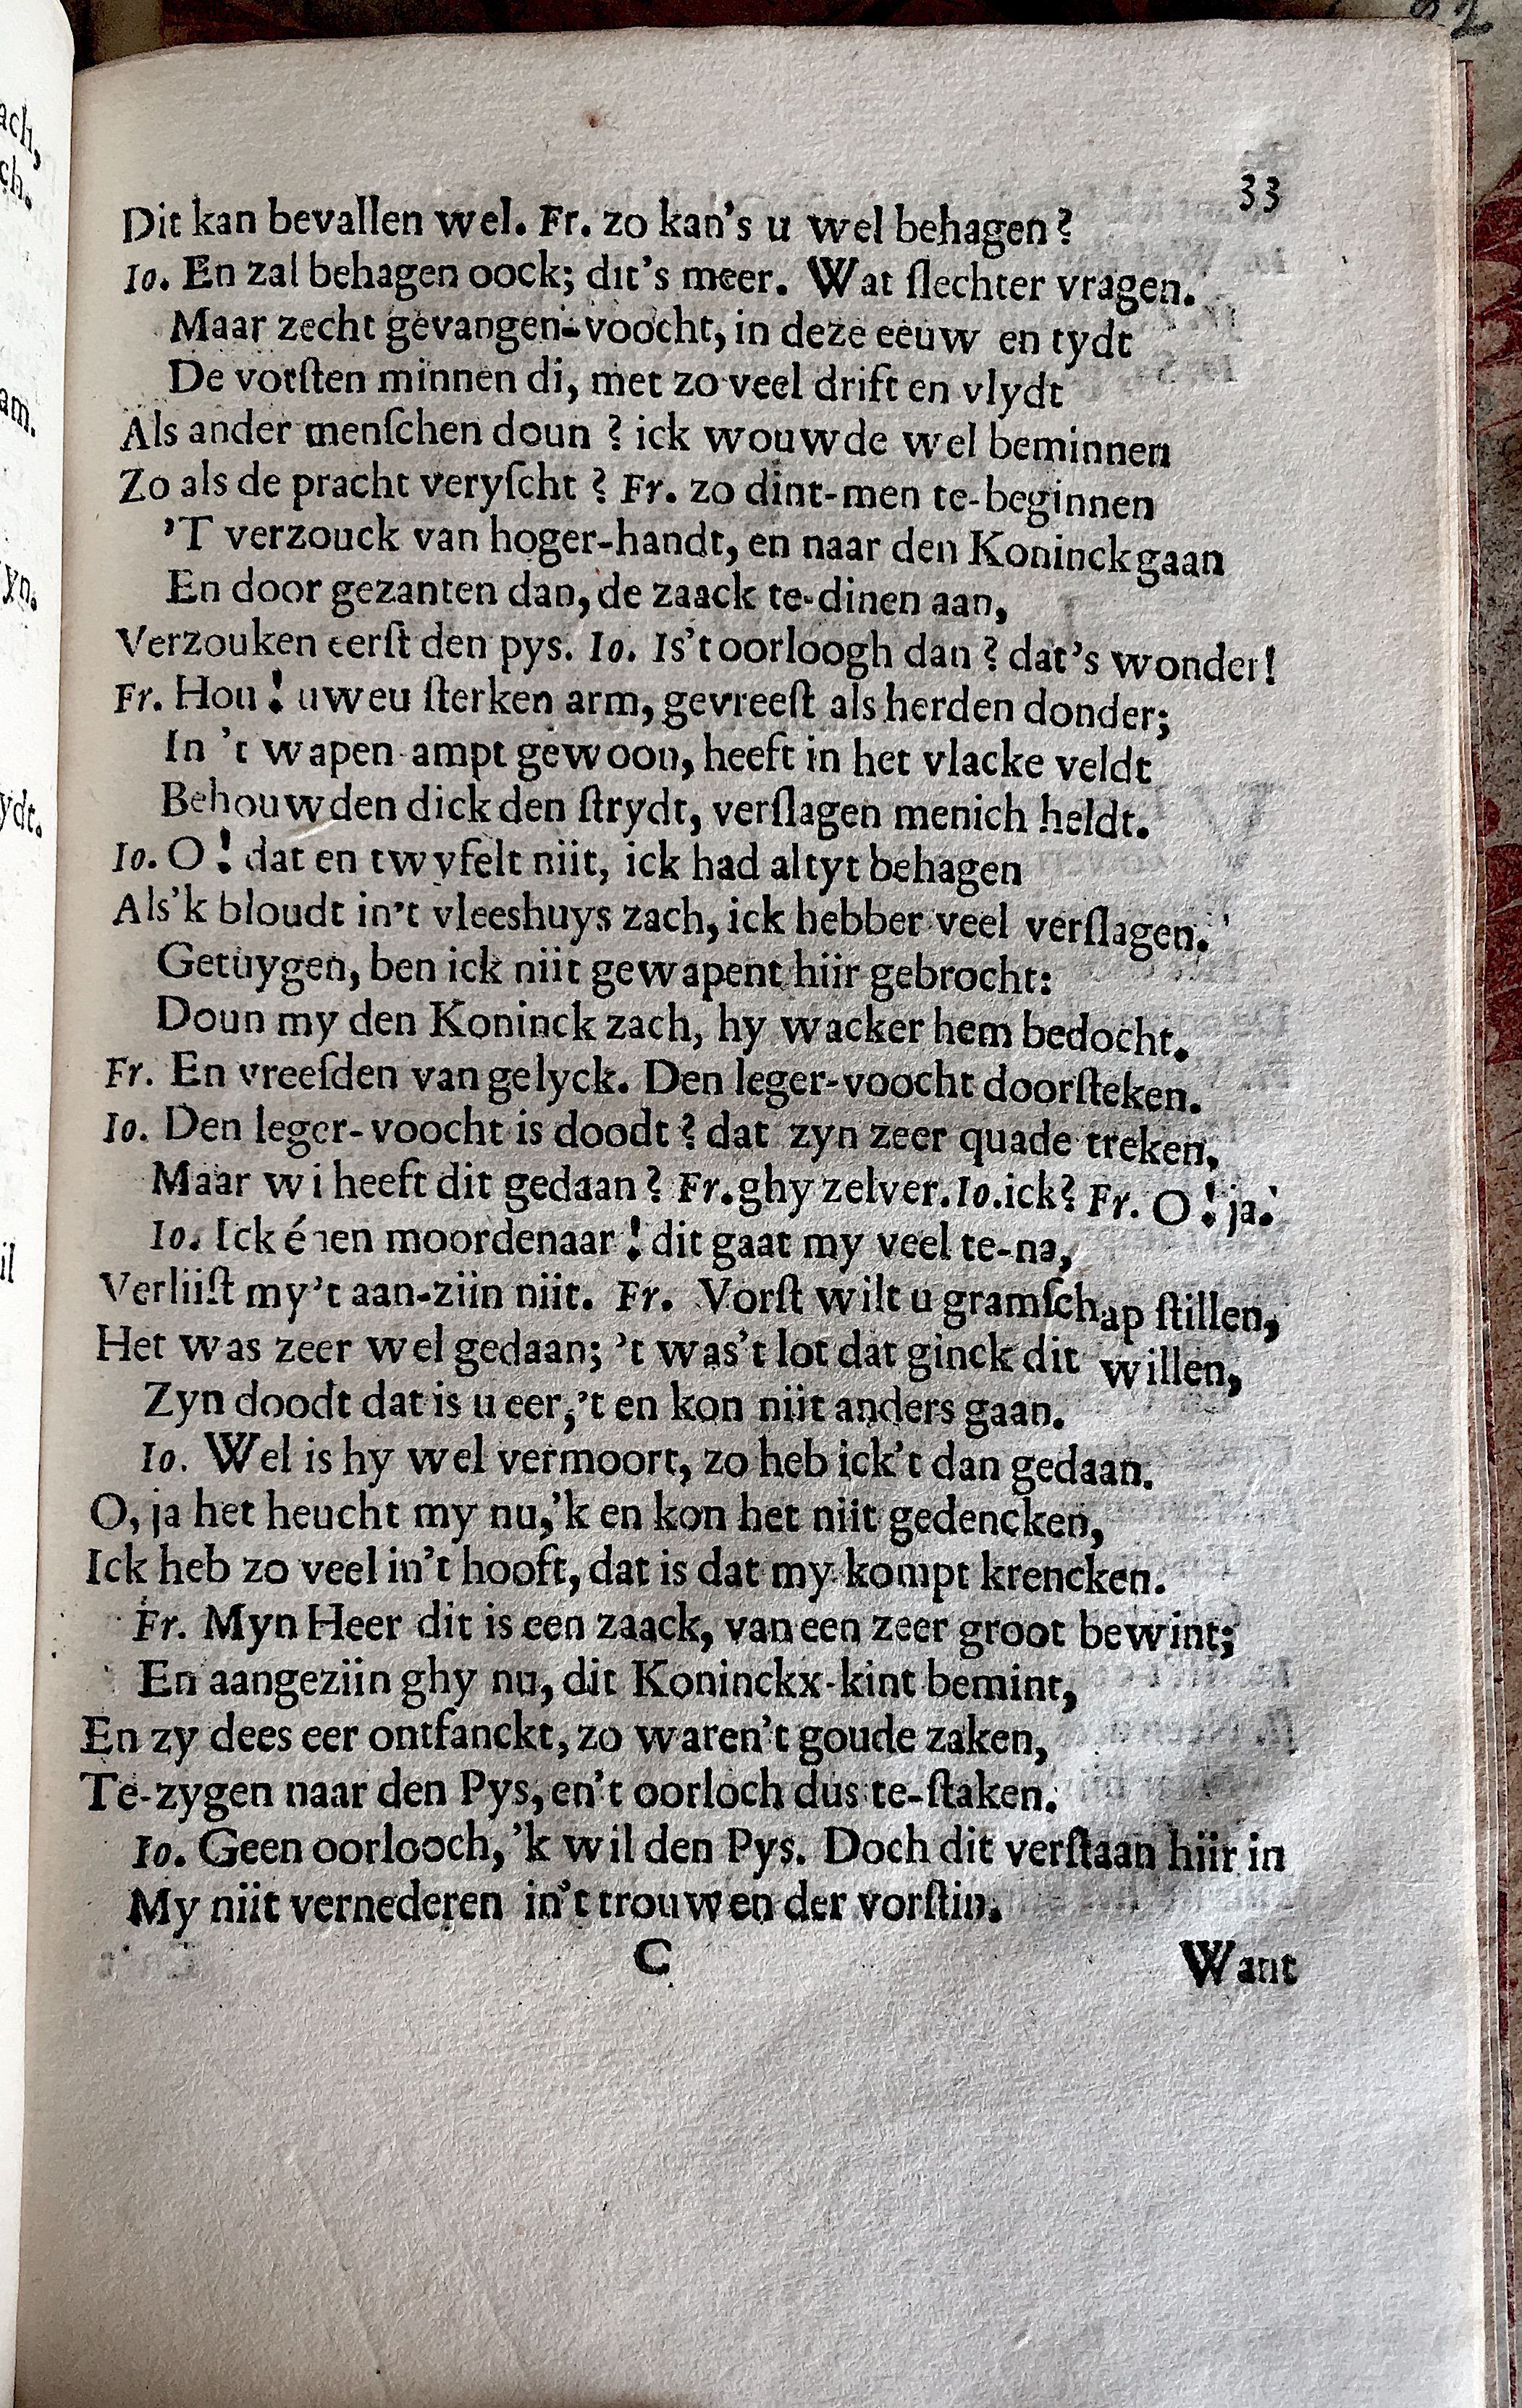 33
Dit kan bevallen wel. Fr. zo kan's u wel behagen?
Io. En zal behagen oock; dit's meer. Wat ſlechter vragen.
Maar zecht gevangen-voocht, in deze eeuw en tydt
De vorſten minnen di, met zo veel drift en vlydt
Als ander menſchen doun? ick wouwde wel beminnen
Zo als de pracht veryſcht? Fr. zo dint-men te-beginnen
'T verzouck van hoger-handt, en naar den Koninck gaan
En door gezanten dan, de zaack te-dinen aan,
Verzouken eerſt den pys. Io. Is't oorloogh dan? dat's wonder!
Fr. Hou! uweu ſterken arm, gevreeſt als herden donder;
In 't wapen ampt gewoon, heeft in het vlacke veldt
Behouwden dick den ſtrydt, verſlagen menich heldt.
Io. O! dat en twyfelt niit, ick had altyt behagen
Als'k bloudt in't vleeshuys zach, ick hebber veel verſlagen.
Getuygen, ben ick niit gewapent hiir gebrocht:
Doun my den Koninck zach, hy wacker hem bedocht.
Fr. En vreeſden van gelyck. Den leger-voocht doorſteken.
Io. Den leger-voocht is doodt? dat zyn zeer quade treken,
Maar wi heeft dit gedaan? Fr. ghy zelver. Io. ick? Fr. O! ja!
Io. Ick énen moordenaar! dit gaat my veel te-na,
Verliiſt my't aan-ziin niit. Fr. Vorſt wilt u gramſchap ſtillen,
Het was zeer wel gedaan; 't was't lot dat ginck dit willen,
Zyn doodt dat is u eer,'t en kon niit anders gaan.
Io. Wel is hy wel vermoort, zo heb ick't dan gedaan.
O, ja het heucht my nu,'k en kon het niit gedencken,
Ick heb zo veel in't hooft, dat is dat my kompt krencken.
Fr. Myn Heer dit is een zaack, van een zeer groot bewint;
En aangeziin ghy nu, dit Koninckx-kint bemint,
En zy dees eer ontfanckt, zo waren't goude zaken,
Te-zygen naar den Pys, en't oorloch dus te-ſtaken.
Io. Geen oorlooch, 'k wil den Pys. Doch dit verſtaan hiir in
My niit vernederen in't trouwen der vorſtin.
C Want